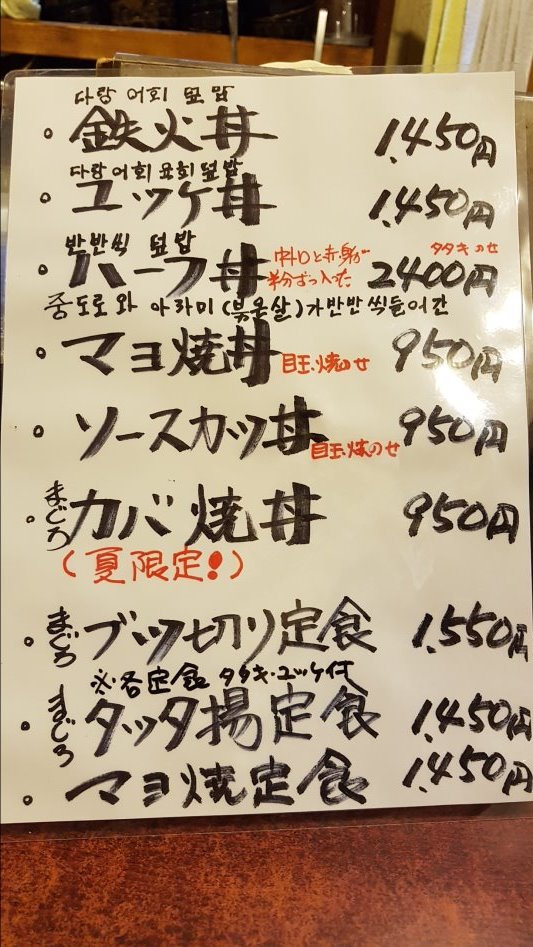 다랑 어회 덮밥
。鉄火丼 1.450円
다랑어회 요회 덮밥
。ユッケ丼 1.450円
반반씩 덮밥
。ハーフ丼 中トロと赤身が半分ずつ入った 2400円 タタキのせ
중도로와 아라미(붉은살)가반반씩들어간
。マヨ焼丼 目玉焼のせ 950円
。ソースカツ丼 目玉焼のせ 950円
。まぐろカバ焼丼 950円
(夏限定!)
。まぐろブツ切り定食 1.550円
※各定食 タタキ・ユッケ付
。まぐろタッタ揚定食 1.450円
。マヨ焼定食 1.450円